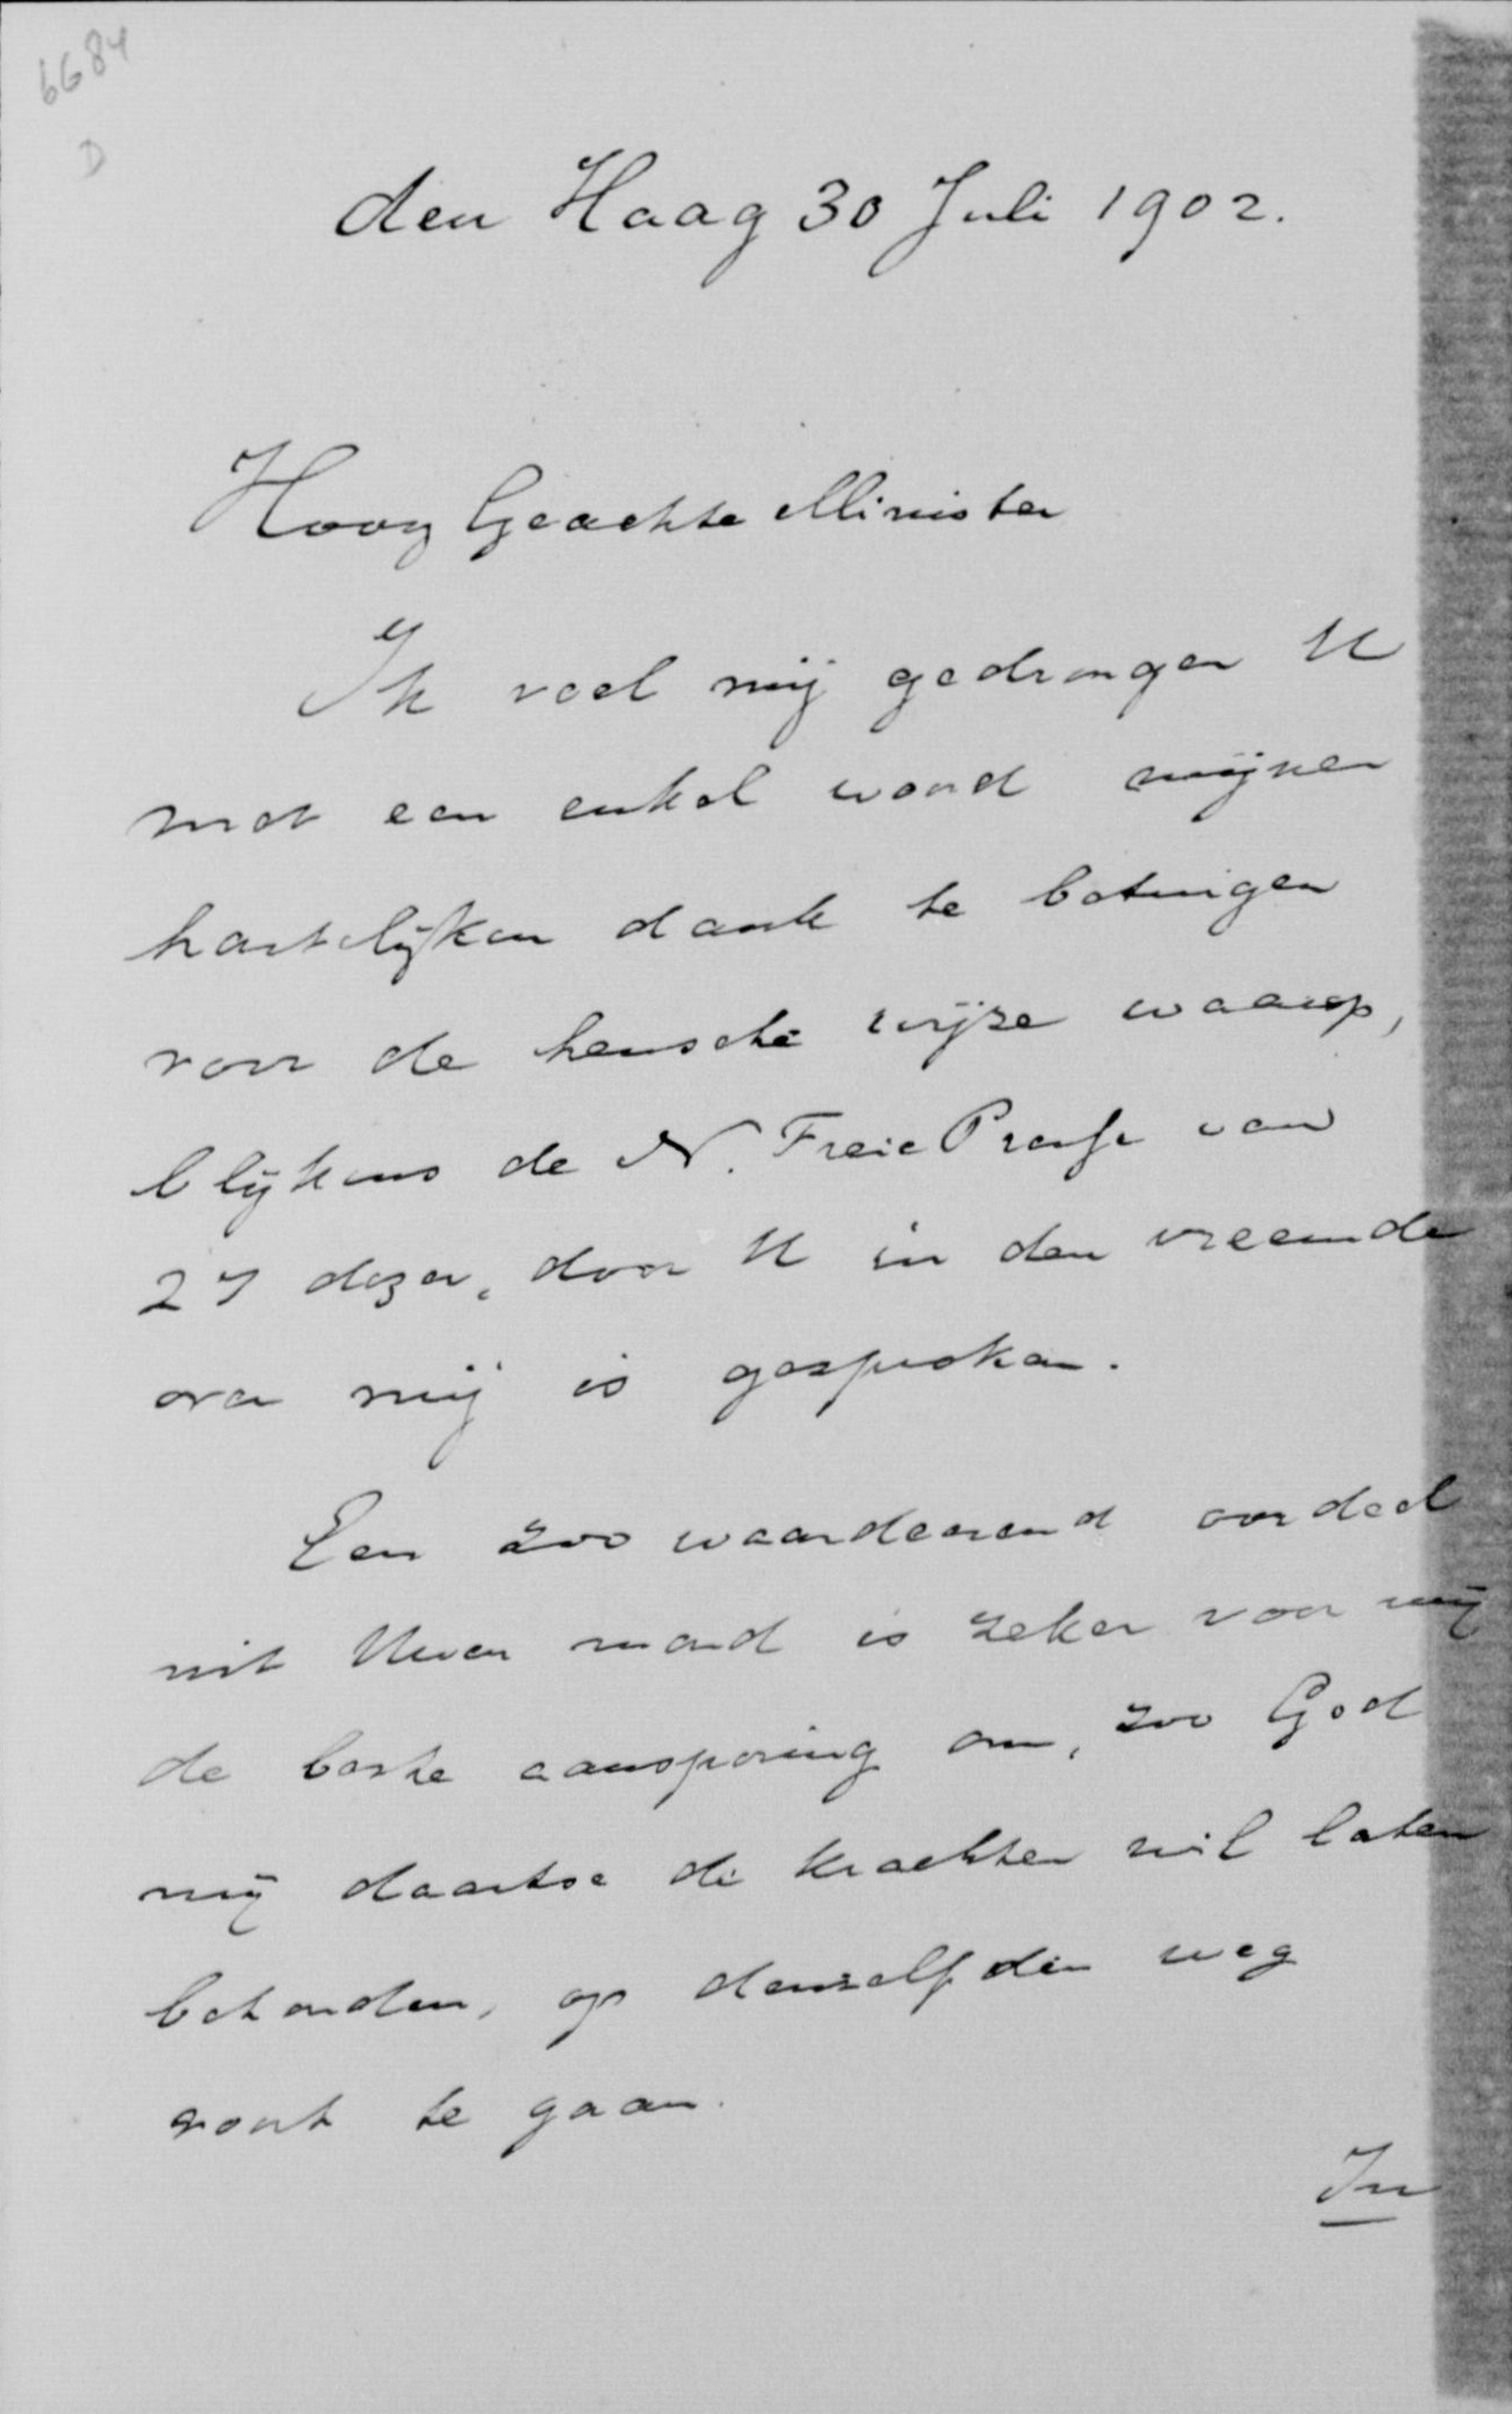 6684
D
den Haag 30 Juli 1902.
Hoog Geachte Minister
Ik voel mij gedrongen U
met een enkel woord mijnen
hartelijken dank te betuigen
voor de heusche wijze waarop,
blijkens de N. Freie Presse van
27 dezer, door U in den vreemde
over mij is gesproken.
Een zoo waardeerend oordeel
uit Uwen mond is zeker voor mij
de beste aansporing om, zoo God
mij daartoe de krachten wil laten
behouden, op denzelfden weg
voort te gaan.
In